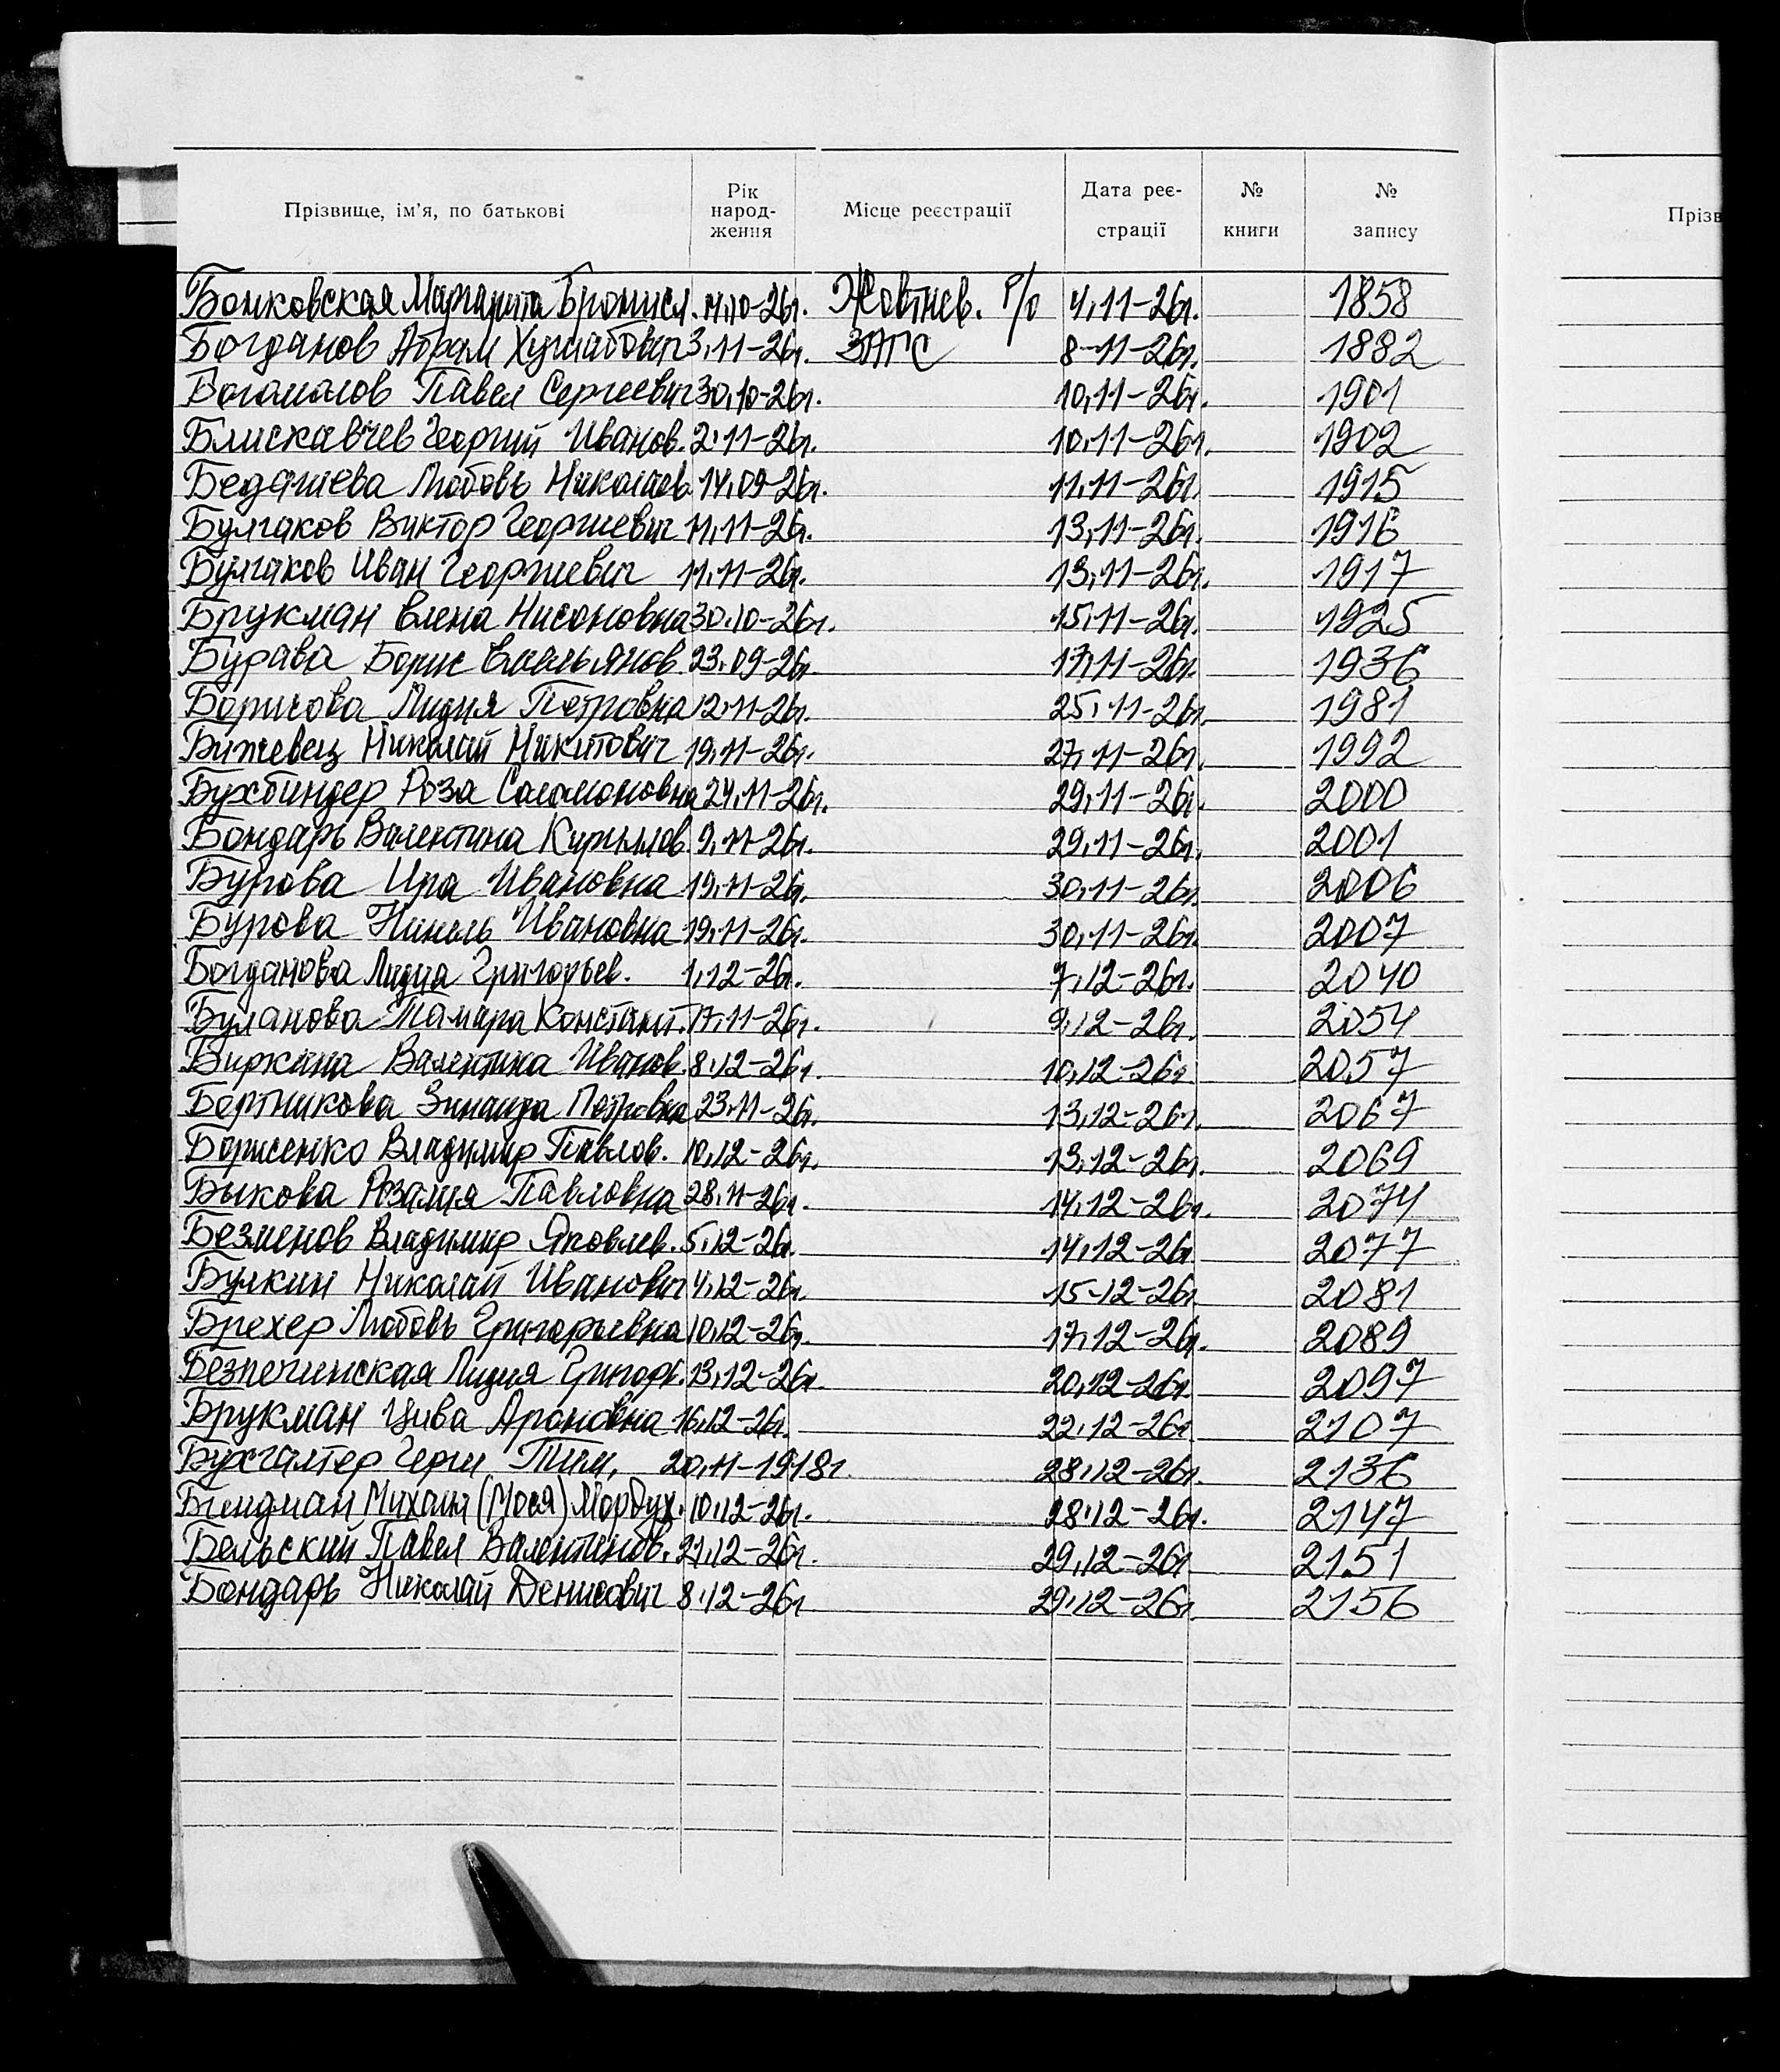 Прізвище, ім'я, по батькові Рік народ-ження Місце реєстрації Дата реє-страції № книги № запису
Прізв
Бонковская Маргарита Бронисл. 14,10-26г. Жовтнев. Р/о 4,11-26г. 1858
Богданов Абрам 3,11-26г. ЗАГС 8-11-26г. 1882
Богомолов Павел Сергеевич 30,10-26г. 10,11-26г. 1901
Блискавчев Георгий Иванов. 2,11-26г. 10,11-26г. 1902
Бедашева Любовь Николаев. 14,09-26г. 11,11-26г. 1915
Булгаков Виктор Георгиевич 11,11-26г. 13,11-26г. 1916
Булгаков Иван Георгиевич 11,11-26г. 13,11-26г. 1917
Брукман Елена Нисоновна 30.10-26г. 15,11-26г. 1925
Бурава Борис Емельянов. 23.09-26г. 17,11-26г. 1936
Борисова Лидия Петровна 12,11-26г. 25,11-26г. 1981
Бижевец Николай Никитович 19,11-26г. 27,11-26г. 1992
Бухбиндер Роза Соломоновна 24,11-26г. 29,11-26г. 2000
Бондарь Валентина Кириллов. 9,11-26г. 29,11-26г. 2001
Бурова Ира Ивановна 19,11-26г. 30,11-26г. 2006
Бурова Нинель Ивановна 19,11-26г. 30,11-26г. 2007
Богданова Лидия Григорьев. 1,12-26г. 7,12-26г. 2040
Буланова Тамара Констант. 17,11-26г. 9,12-26г. 2054
Биркина Валентина Иванов. 8,12-26г. 10,12-26г. 2057
Бортникова Зинаида Петровна 23,11-26г. 13,12-26г. 2067
Борисенко Владимир Павлов. 10,12-26г. 13,12-26г. 2069
Быкова Розалия Павловна 28,11-26г. 14,12-26г. 2074
Безменов Владимир Яковлев. 5,12-26г. 14,12-26г. 2077
Булкин Николай Иванович 4,12-26г. 15-12-26г. 2081
Брехер Любовь Григорьевна 10,12-26г. 17,12-26г. 2089
Безпечинская Лидия Григорь. 13,12-26г. 20,12-26г. 2097
Брукман Цива Ароновна 16,12-26г. 22,12-26г. 2107
Бухгалтер Герш 20,11-1918г. 28,12-26г. 2136
Биндман Михаил (Мося) Мордух. 10,12-26г. 28,12-26г. 2147
Бельский Павел Валентинов. 21,12-26г. 29,12-26г. 2151
Бондарь Николай Денисович 8,12-26г. 29,12-26г. 2156